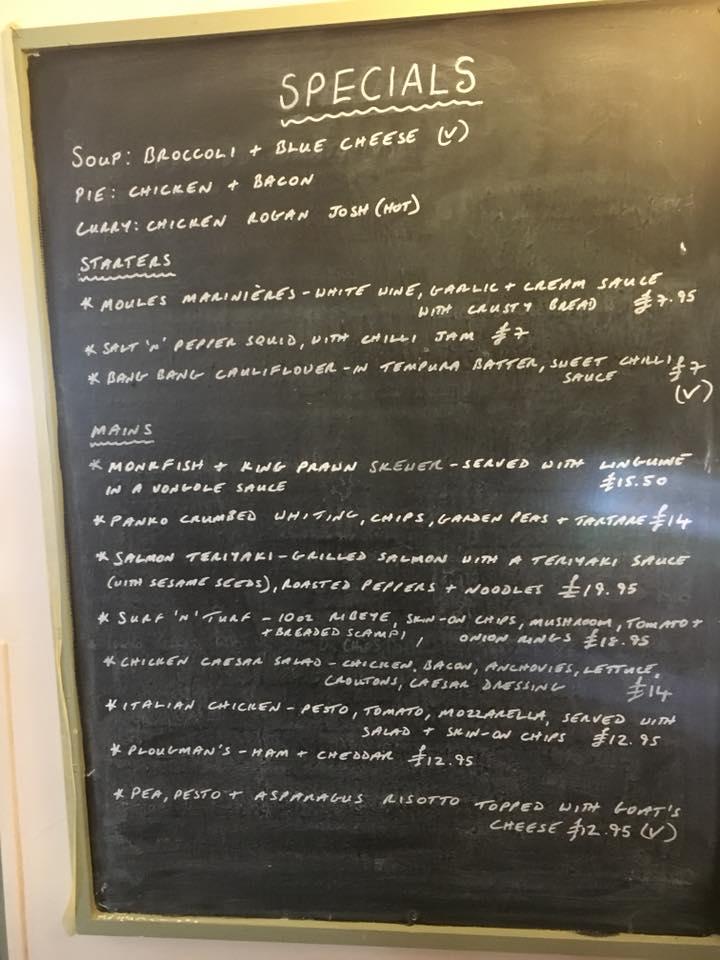 SPECIALS
SOUP: BROCCOLI + BLUE CHEESE (V)
PIE: CHICKEN + BACON
CURRY: CHICKEN ROGAN JOSH (HOT)
STARTERS
* MOULES MARINIÈRES - WHITE WINE, GARLIC + CREAM SAUCE
WITH CRUSTY BREAD £7.95
* SALT 'N' PEPPER SQUID, WITH CHILLI JAM £7
* BANG BANG CAULIFLOVER - IN TEMPURA BATTER, SWEET CHILLI £7
SAUCE
(V)
MAINS
* MONKFISH + KING PRAWN SKEWER - SERVED WITH LINGUINE
IN A VONGOLE SAUCE £15.50
* PANKO CRUMBED WHITING, CHIPS, GARDEN PEAS + TARTARE £14
* SALMON TERIYAKI - GRILLED SALMON WITH A TERIYAKI SAUCE
(WITH SESAME SEEDS), ROASTED PEPPERS + NOODLES £19.95
* SURF 'N' TURF - 10oz RIBEYE, SKIN-ON CHIPS, MUSHROOM, TOMATO +
+ BREADED SCAMPI, ONION RINGS £18.95
* CHICKEN CAESAR SALAD - CHICKEN, BACON, ANCHOVIES, LETTUCE,
CROUTONS, CAESAR DRESSING £14
* ITALIAN CHICKEN - PESTO, TOMATO, MOZZARELLA, SERVED WITH
SALAD + SKIN-ON CHIPS £12.95
* PLOUGMAN'S - HAM + CHEDDAR £12.95
* PEA, PESTO + ASPARAGUS RISOTTO TOPPED WITH GOAT'S
CHEESE £12.95 (V)